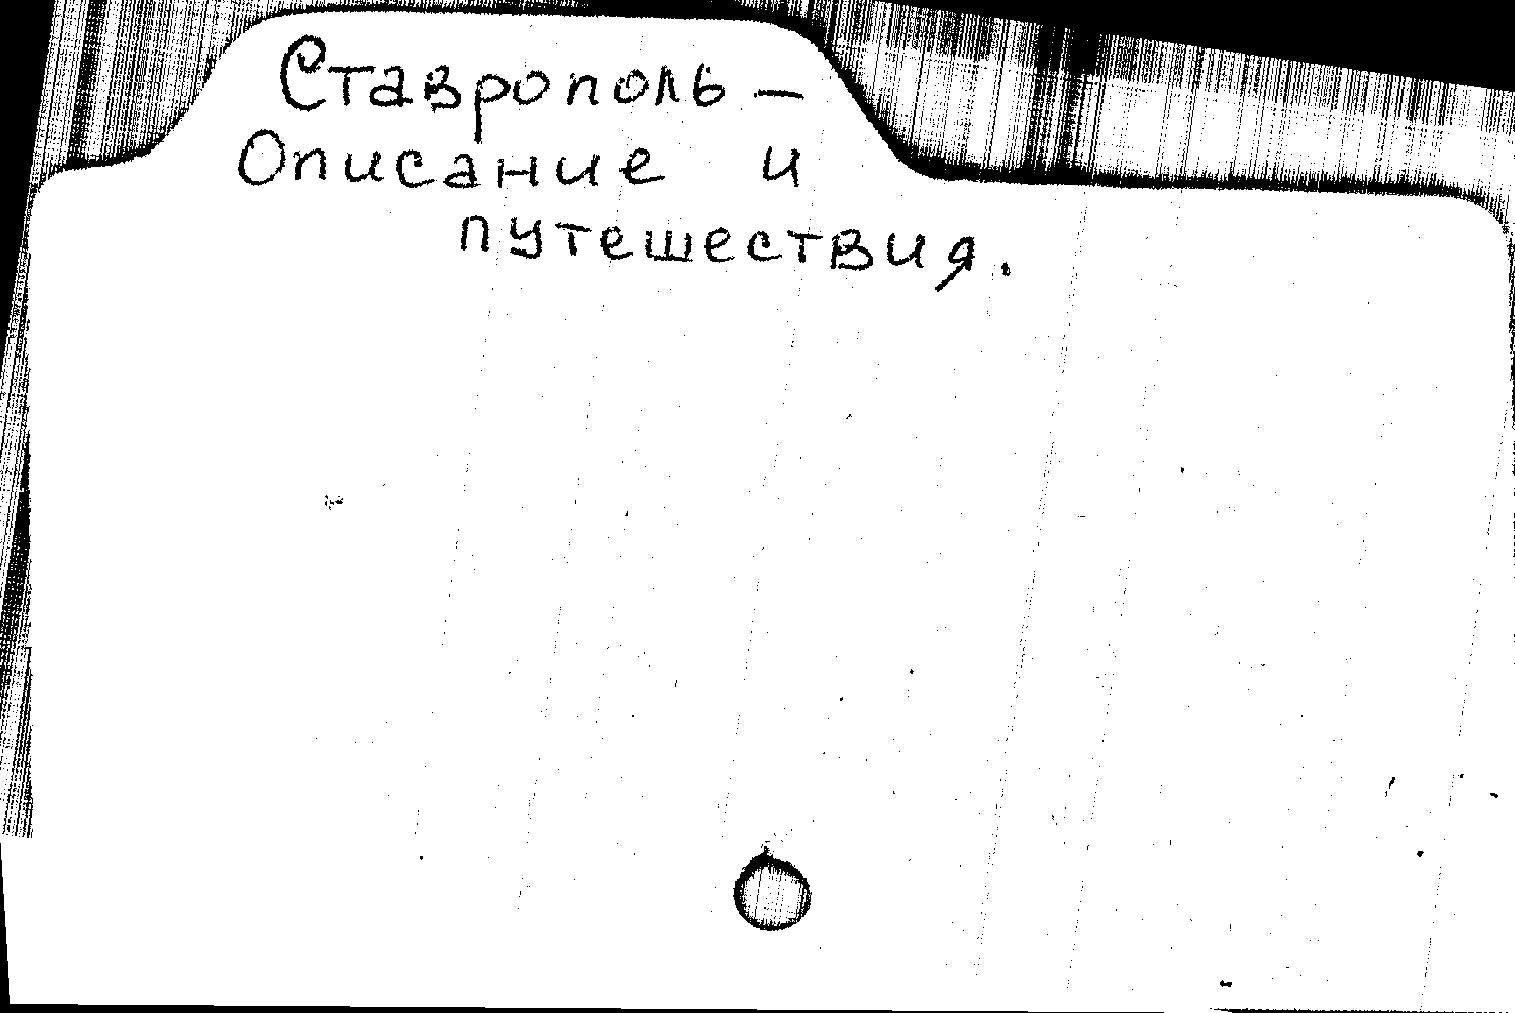 Ставрополь —
Описание и
путешествия.